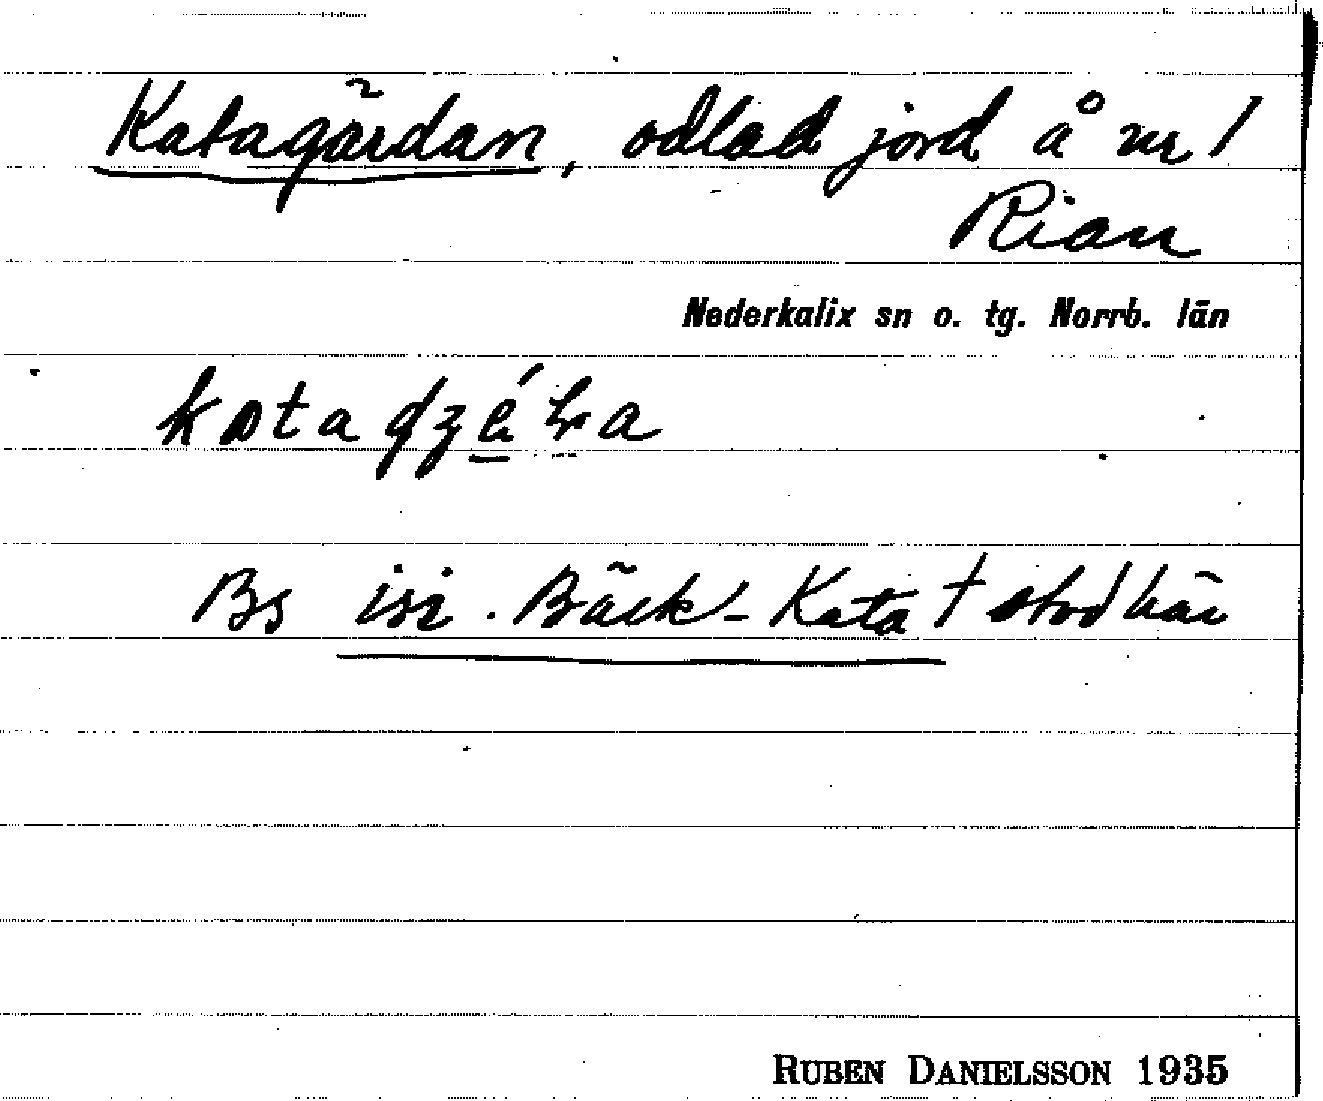 Katagärdan, odlad jord å nr 1
Rian
Nederkalix sn o. tg. Norrb. län
Bs isi. Bäck-Kata † stod här
RUBEN DANIELSSON 1935